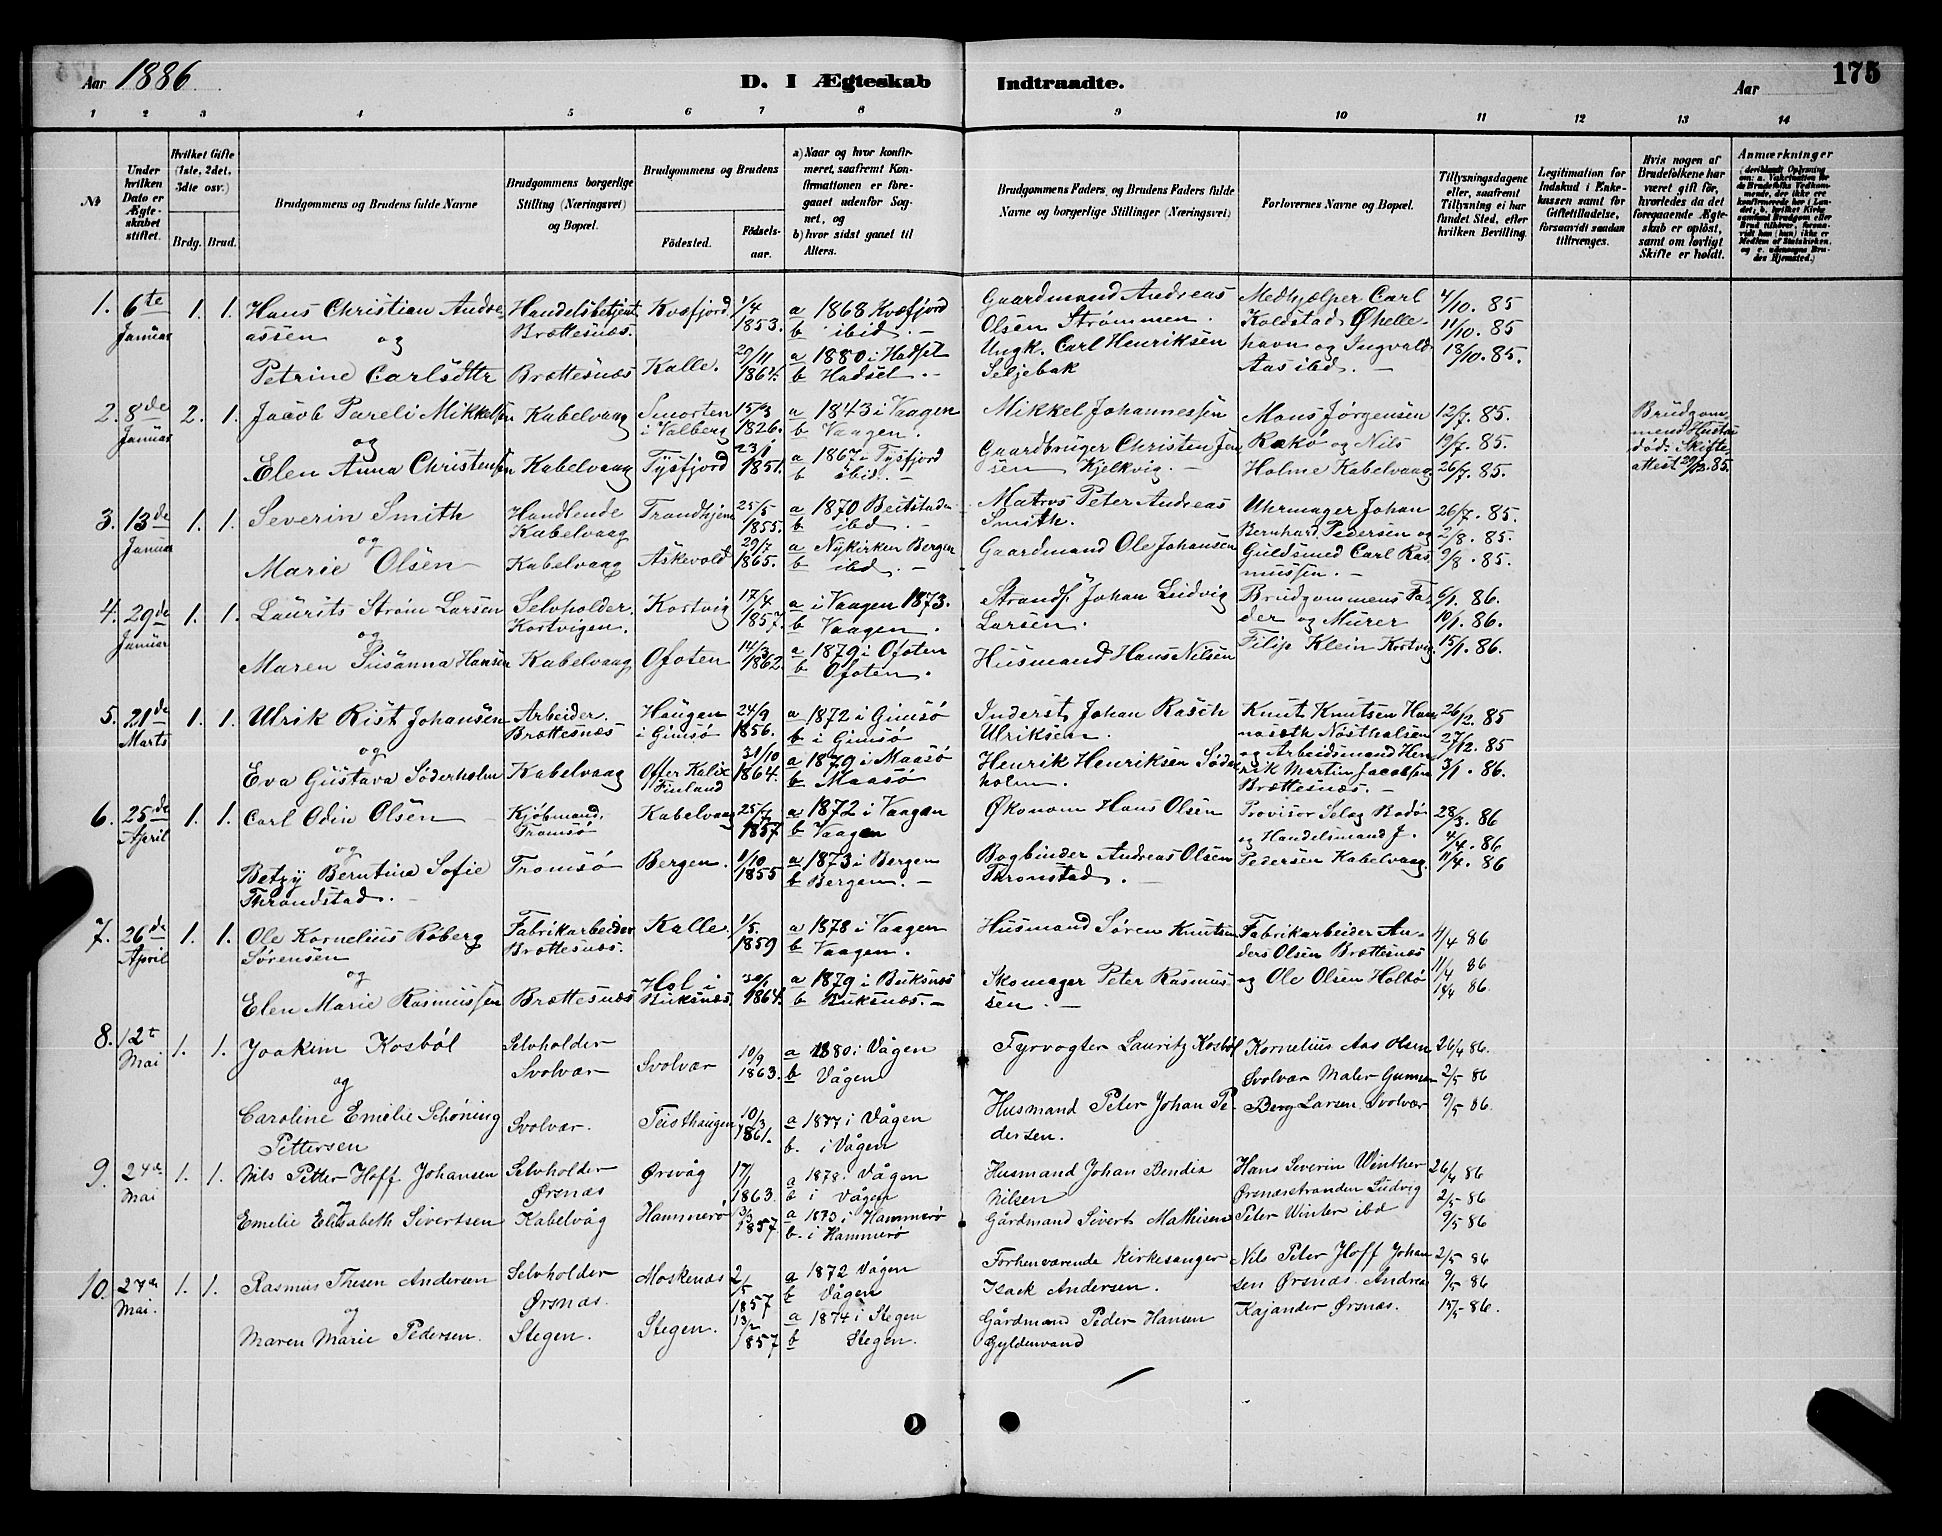 Aar 1886
D. I Ægteskab Indtraadte.
Aar
175
1 2 3 4 5 6 7 8 9 10 11 12 13 14
No.
Under hvilken Dato er Ægteskabet stiftet.
Hvilket Gifte (1ste, 2det, 3die osv.)
Brdg. Brud.
Brudgommens og Brudens fulde Navne
Brudgommens borgerlige Stilling (Næringsvei) og Bopæl.
Brudgommens og Brudens
Fødested.
Fødselsaar.
a) Naar og hvor konfirmeret, saafremt Konfirmationen er foregaaet udenfor Sognet, og
b) hvor sidst gaaet til Alters.
Brudgommens Faders, og Brudens Faders fulde Navne og borgerlige Stillinger (Næringsvei)
Forlovernes Navne og Bopæl.
Tillysningsdagene eller, saafremt Tillysning ei har fundet Sted, efter hvilken Bevilling.
Legitimation for Indskud i Enkekassen samt for Giftetilladelse, forsaavidt saadan tiltrænges.
Hvis nogen af Brudefolkene har været gift før, hvorledes da det foregaaende Ægteskab er opløst, samt om lovligt Skifte er holdt.
Anmærkninger
1. 6te Januar 1. 1. Hans Christian Andreassen Handelsbetjent Brættesnæs. Kvæfjord 1/4 1853. a 1868 Kvæfjord b ibid. Gaardmand Andreas Olsen Strømmen. Medhjælper Carl Koldstad Øhellehavn og Ingvald Aas ibd. 4/10. 85 11/10. 85 18/10. 85.
og
Petrine Carlsdttr Brættesnæs Kalle. 29/11 1864. a 1880 i Hadsel b Hadsel. Ungk. Carl Henriksen Seljebak
2. 8de Januar 2. 1. Jacob Pareli Mikkelsen Kabelvaag Smorten i Valberg 15/3 1826. a 1843 i Vaagen b Vaagen. Mikkel Johannessen Mons Jørgensen Rækø og Nils Holme Kabelvaag 12/7. 85. 19/7. 85. 26/7. 85. Brudgommens Hustru død: Skifteattest 29/12. 85.
og
Elen Anna Christensen Kabelvaag Tysfjord 23/1 1851. a 1867 i Tysfjord b ibid. Gaardbruger Christen Jensen Kjelkvig.
3. 13de Januar 1. 1. Severin Smith Handlende Kabelvaag Trondhjem 25/5 1855. a 1870 Beitstaden b ibd. Matros Peter Andreas Smith. Uhrmager Johan Bernhard Pedersen og Guldsmed Carl Rasmussen. 26/7. 85. 2/8. 85. 9/8. 85.
og
Marie Olsen Kabelvaag Askevold 29/7 1865. a Nykirken Bergen b ibd. Gaardmand Ole Johansen
4. 29de Januar 1. 1. Laurits Strøm Larsen Selvholder. Kortvigen. Kortvig 17/4 1857. a i Vaagen 1873. b Vaagen. Strands. Johan Ludvig Larsen. Brudgommens Fader og Murer Filip Klein Kortvig. 6/1. 86. 10/1. 86. 15/1. 86.
og
Maren Susanna Hansen Kabelvaag Ofoten 14/3 1862. a 1879 i Ofoten b Ofoten. Husmand Hans Nilsen
5. 21de Marts 1. 1. Ulrik Rist Johansen Arbeider. Brættesnæs Haugen i Gimsø 24/9 1856. a 1872 i Gimsø b i Gimsø Inderst Johan Rasch Ulriksen. Knut Knutsen Nøsthalsen og Arbeidsmand Henrik Martin Jacobsen Brættesnæs. 26/12. 85 27/12. 85 3/1. 86.
og
Eva Gustava Söderholm Kabelvaag Öfter Kalix Finland 31/10 1864. a 1879 i Maasø b Maasø Henrik Henriksen Söderholm.
6. 25de April 1. 1. Carl Odin Olsen Kjøbmand, Tromsø Kabelvaag 25/7 1857. a 1872 i Vaagen b Vaagen Økonom Hans Olsen Provisor Selag Bodø og Handelsmand J. Pedersen Kabelvaag. 28/3. 86 4/4. 86 11/4. 86
og
Betzy Berntina Sofie Throndstad. Tromsø Bergen. 1/10 1855 a 1873 i Bergen b Bergen. Bogbinder Andreas Olsen Thronstad.
7. 26de April 1. 1. Ole Kornelius Roberg Sørensen Fabrikarbeider Brættesnæs. Kalle 1/5. 1859 a 1878 i Vaagen b Vaagen. Husmand Søren Knutsen Fabrikarbeider Anders Olsen Brættesnæs og Ole Olsen Holbø 4/4 86 11/4 86 14/4 86.
og
Elen Marie Rasmussen Brættesnæs Hol i Buksnæs. 30/1 1864. a 1879 i Buksnæs b Buksnæs. Skomager Peter Rasmussen.
8. 12t Mai 1. 1. Joakim Kosbøl Selvholder Svolvær Svolvær 10/9 1863. a 1880 i Vågen b Vågen Fyrvogter Lauritz Kosbøl Kornelius Aas Olsen Svolvær Maler Gunnar Berg Larsen, Svolvær 26/4 86. 2/5 86 9/5 86.
og
Caroline Emelie Schøning Pettersen Svolvær. Teisthaugen 10/3 1861. a 1877 i Vågen b. i Vågen Husmand Peter Johan Pedersen.
9. 24de Mai 1. 1. Nils Petter Hoff Johansen Selvholder Ørsnæs Ørsvåg 17/1 1863. a 1878 i Vågen b i Vågen Husmand Johan Bendix Nilsen Hans Severin Winther Ørsnæsstranden Ludvig Peter Winter ibd 26/4 86 2/5 86 9/5 86
og
Emelie Elisabeth Sivertsen Kabelvåg Hammerø 3/3 1857. a 1873 i Hammerø b. i Hammerø Gårdmand Sivert Mathisen
10. 27de Mai. 1. 1. Rasmus Thesen Andersen Selvholder Ørsnæs. Moskenæs 2/5 1857 a 1872 Vågen b Vågen Forhenværende Kirkesanger Isack Andersen. Nils Peter Hoff Johansen Ørsnæs. Andreas Kajander Ørsnæs. 2/5 86 9/5 86 15/5 86.
og
Maren Marie Pedersen. Stegen. Stegen. 13/2 1857 a 1874 i Stegen b Stegen. Gårdmand Peder Hansen Gyldenvand